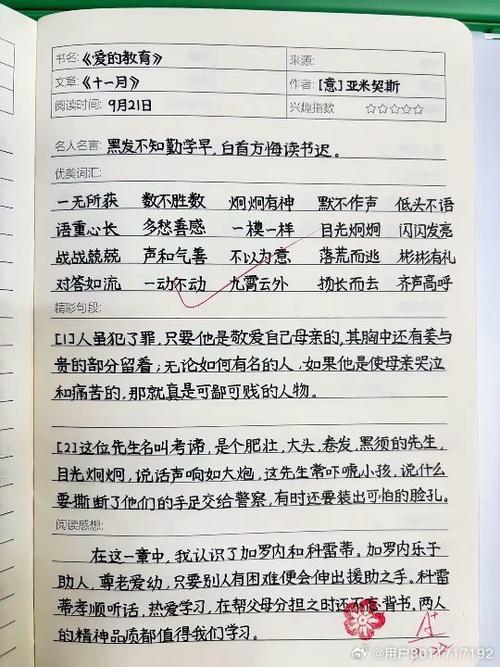 书名:《爱的教育》 来源:
文章:《十一月》 作者:[意]亚米契斯
阅读时间: 9月21日 兴趣指数 ☆☆☆☆☆
名人名言: 黑发不知勤学早,白首方悔读书迟。
优美词汇:
一无所获 数不胜数 炯炯有神 默不作声 低头不语
语重心长 多愁善感 一模一样 目光炯炯 闪闪发亮
战战兢兢 声和气善 不以为意 落荒而逃 彬彬有礼
对答如流 一动不动 九霄云外 扬长而去 齐声高呼
精彩句段:
[1]人虽犯了罪,只要他是敬爱自己母亲的,其胸中还有美与
贵的部分留着;无论如何有名的人,如果他是使母亲哭泣
和痛苦的,那就真是可鄙可贱的人物。
[2]这位先生名叫考谛,是个肥壮、大头、卷发、黑须的先生,
目光炯炯,说话声响如大炮,这先生常吓唬小孩,说什么
要撕断了他们的手足交给警察,有时还要装出可怕的脸孔。
阅读感想:
在这一章中,我认识了加罗内和科雷蒂。加罗内乐于
助人,尊老爱幼,只要别人有困难便会伸出援助之手。科雷
蒂孝顺听话,热爱学习,在帮父母分担之时还不忘背书,两人
的精神品质都值得我们学习。
A+
@用户8011717192